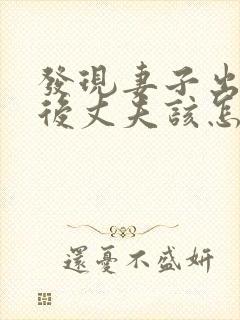 發現妻子出
後丈夫該怎
還憂不盛妍